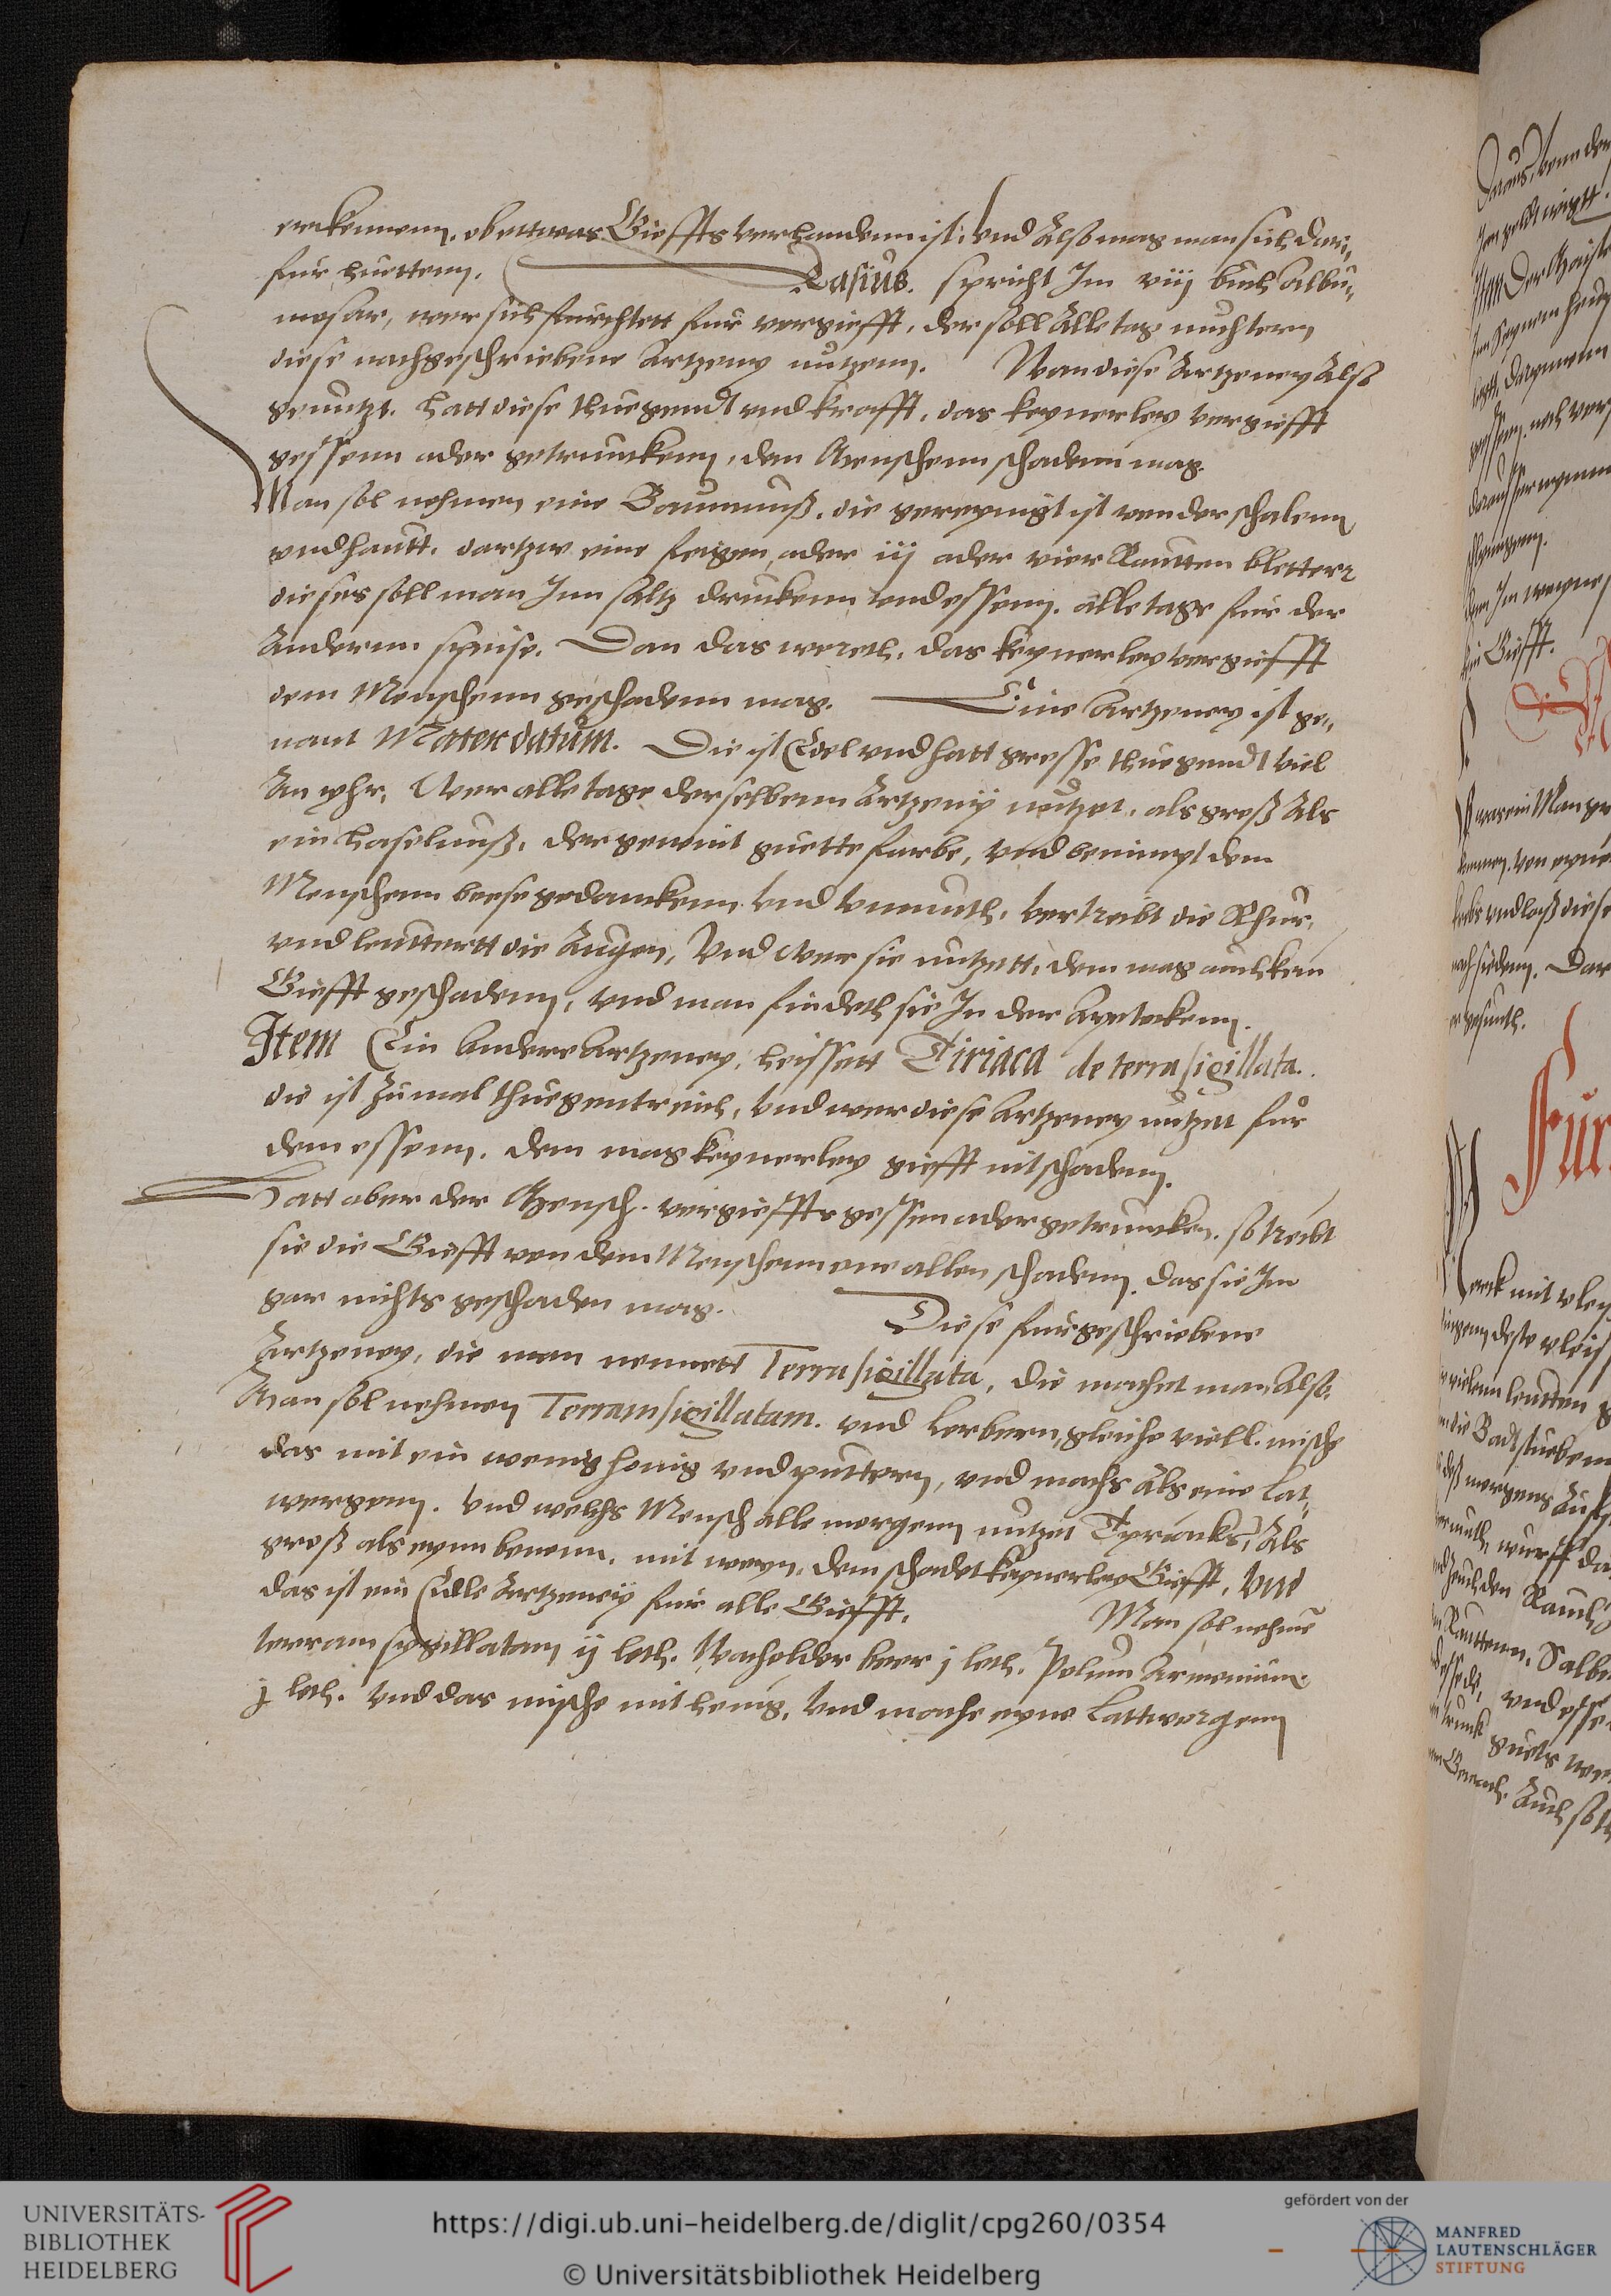 erckennenn. ob ettwas Giefftts verhandenn ist: vnd Alß mag man sich dar,,
fur huettenn. Rasius. spricht Im viij buch Albu,,
mosar, wer sich furchtett fur vergiefft, der soll Alle tag nuchtern
diese nachgeschriebene Artzeny nutzenn. Wan diese Artzeney Alß
genutzt. hatt diese thuegendt vnd krafft, das keynerley vergiefft
gessenn ader getrunckenn, den Menschenn schadenn mag.
Man sol nehmen eine Baumnuß. die gereynigt ist von der schalenn
vnd hautt. dartzw eine feigen, ader iij ader vier Rautten bletter
dieses soll man Inn saltz druckenn vnd essenn. alle tage fur der
Anderenn speise. Dan das wereth, das keynerley vergiefft
dem Menschenn geschadenn mag. Eine Artzeney ist ge,,
nant Mater datum. Die ist Edel vnd hatt grosse thuegendt viel
An yhr. Wer alle tage derselbenn Artzeny nutzet, als groß Als
ein haselnuß, der gewint guette farbe, vnd benimpt dem
Menschenn boese gedanckenn vnd vnmuth, vertreibt die Rhur,
vnd leuttertt die Augen, Vnd Wer sie nutzett, dem mag auch kein
Giefft geschadenn, vnd man findeth sie In der Apoteckenn.
Item Ein Andere Artzeney, heissett Tiriaca de terra sigillata.
die ist zumal thuegentreich, vnd wer diese Artzeney nutzet fur
dem essenn. dem mag keynerley giefft nit schadenn.
Hatt aber der Mensch. vergieffts gessen ader getruncken. so treibt
sie die Giefft von dem Menschenn one allen schadenn. das sie Im
gar nichts geschaden mag. Diese furgeschriebene
Artzeney, die man nennett Terra sigillata, die machet man Alß.
Man sol nehmen Terram sigillatam. vnd Lorbern, gleiche viell. mische
das mit ein wenig honig vnd puttern, vnd machs Als eine Lat,,
wergenn. Vnd welchs Mensch alle morgenn nutzet Tyriacks, Als
groß als eynn bonenn. mit weyn. dem schadet keynerley Giefft. Vnd
das ist ein Edle Artzeney fur alle Giefft. Man sol nehme
terram sygillatam ij loth. Wacholder beer j loth. Polum Armenium
j loth. Vnd das mische mit honig. Vnd mache eyne Lattwergenn
UNIVERSITÄTS-
BIBLIOTHEK
HEIDELBERG
https://digi.ub.uni-heidelberg.de/diglit/cpg260/0354
© Universitätsbibliothek Heidelberg
gefördert von der
MANFRED
LAUTENSCHLÄGER
STIFTUNG